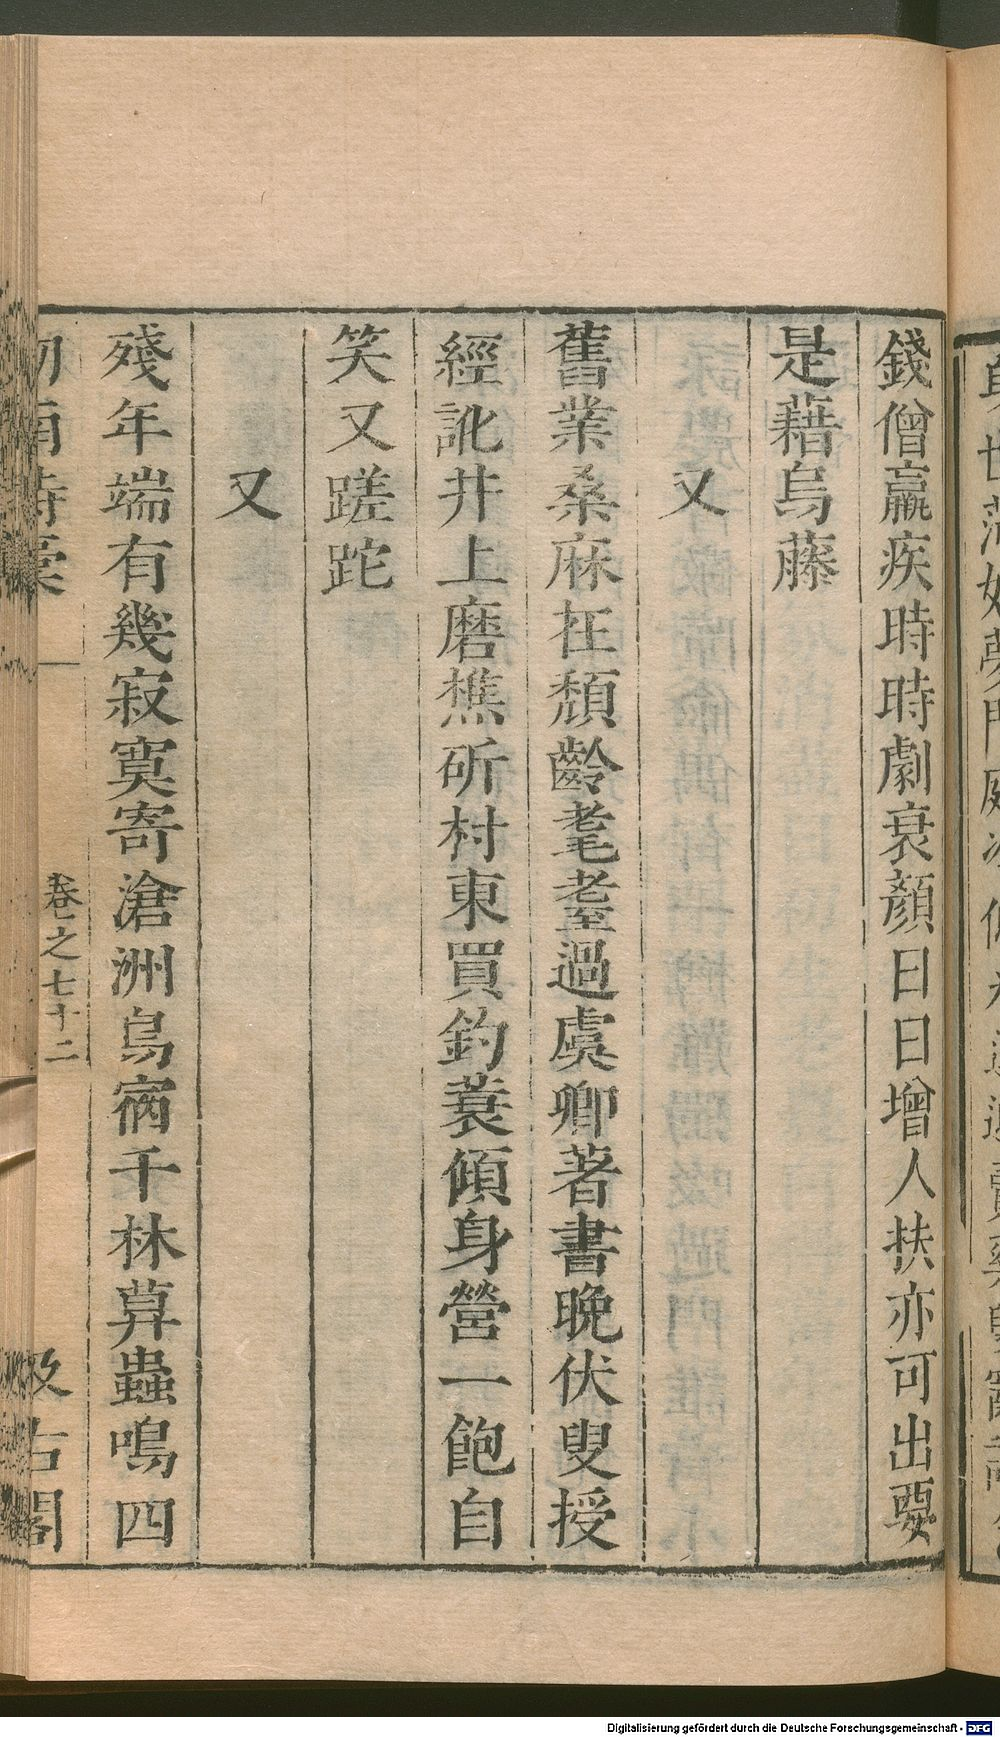 錢僧羸疾時時劇衰顏日日增人扶亦可出要
是藉烏藤
又
舊業桑麻在頹齡耄耋過虞卿著書晚伏叟授
經訛井上磨樵斫村東買釣蓑傾身營一飽自
笑又蹉跎
又
殘年端有幾寂寞寄滄洲鳥宿千林暮蟲鳴四
卷之七十二
汲古閣
Digitalisierung gefördert durch die Deutsche Forschungsgemeinschaft - DFG